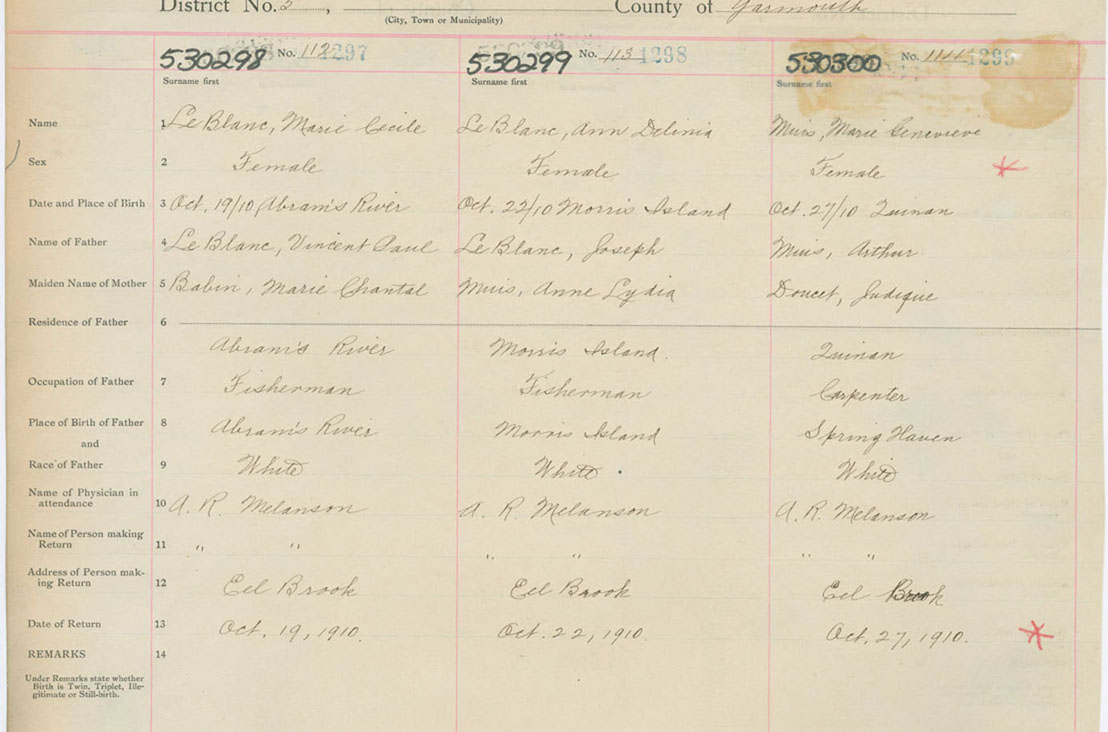 District No. 2, County of Yarmouth
(City, Town or Municipality)
530298 No. 112 1297 530299 No. 113 1298 530300 No. 114 1299
Surname first Surname first Surname first
Name 1 Le Blanc, Marie Cecile Le Blanc, Ann Delinia Muis, Marie Genevieve
Sex 2 Female Female Female
Date and Place of Birth 3 Oct. 19/10, Abram's River Oct. 22/10 Morris Island Oct. 27/10 Quinan
Name of Father 4 Le Blanc, Vincent Paul Le Blanc, Joseph Muis, Arthur
Maiden Name of Mother 5 Babin, Marie Chantal Muis, Anne Lydia Doucet, Judique
Residence of Father 6
Abram's River Morris Island. Quinan
Occupation of Father 7 Fisherman Fisherman Carpenter
Place of Birth of Father 8 Abram's River Morris Island Spring Haven
and
Race of Father 9 White White White
Name of Physician in
attendance 10 A. R. Melanson A. R. Melanson A. R. Melanson
Name of Person making
Return 11 " " " " " "
Address of Person mak-
ing Return 12 Eel Brook Eel Brook Eel Brook
Date of Return 13 Oct. 19, 1910. Oct. 22, 1910. Oct. 27, 1910.
REMARKS 14
Under Remarks state whether
Birth is Twin, Triplet, Ille-
gitimate or Still-birth.